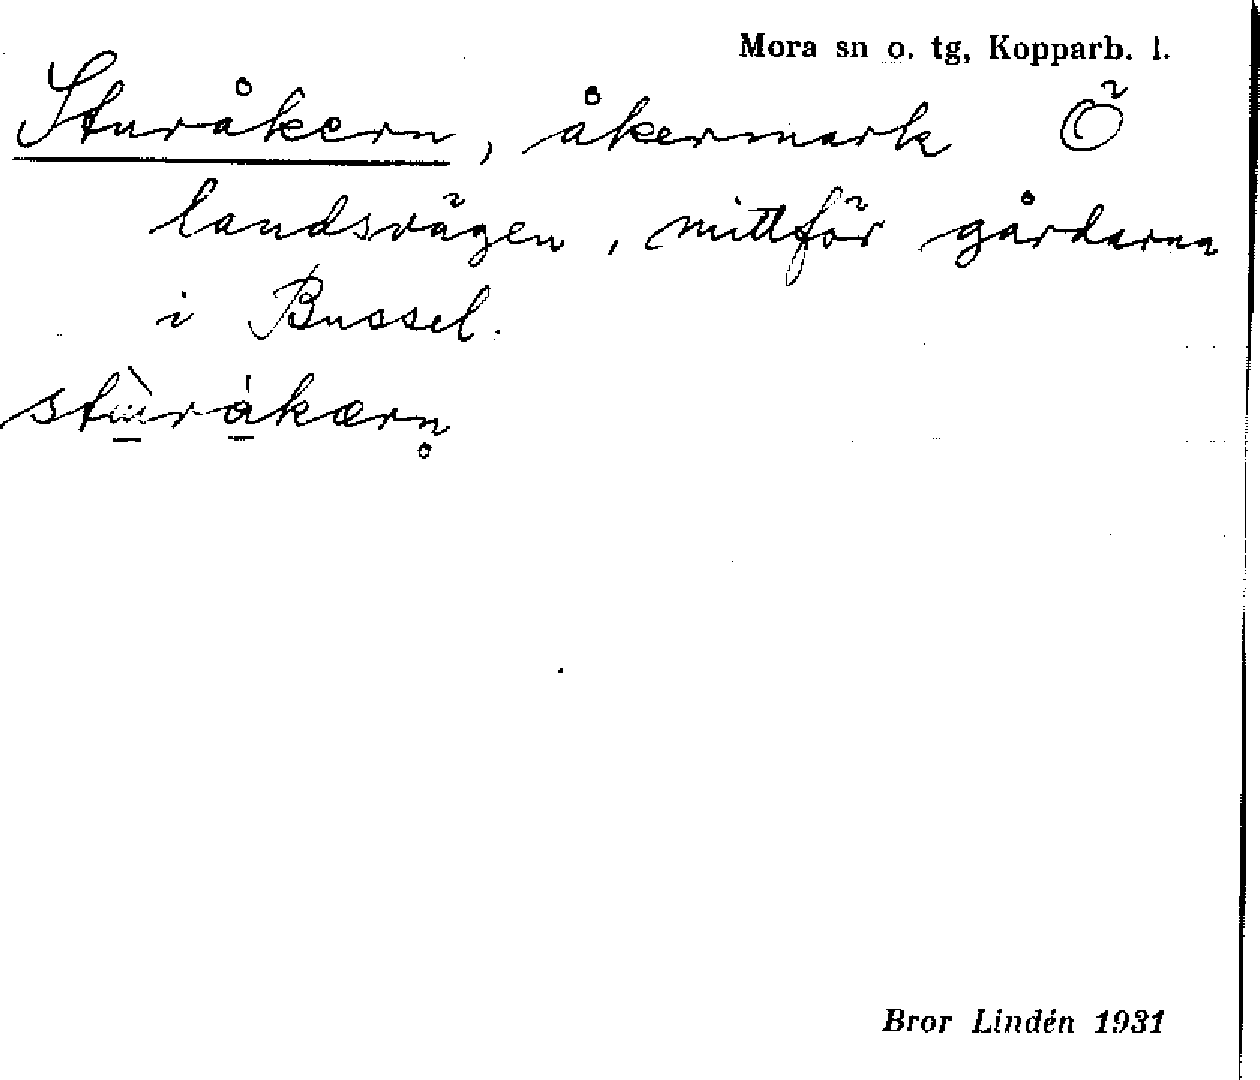 Mora sn o. tg, Kopparb. l.
Sturåkern, åkermark Ö
landsvägen, mittför gårdarna
i Bussel.
stu̠̇̀rå̠kærn̥
Bror Lindén 1931